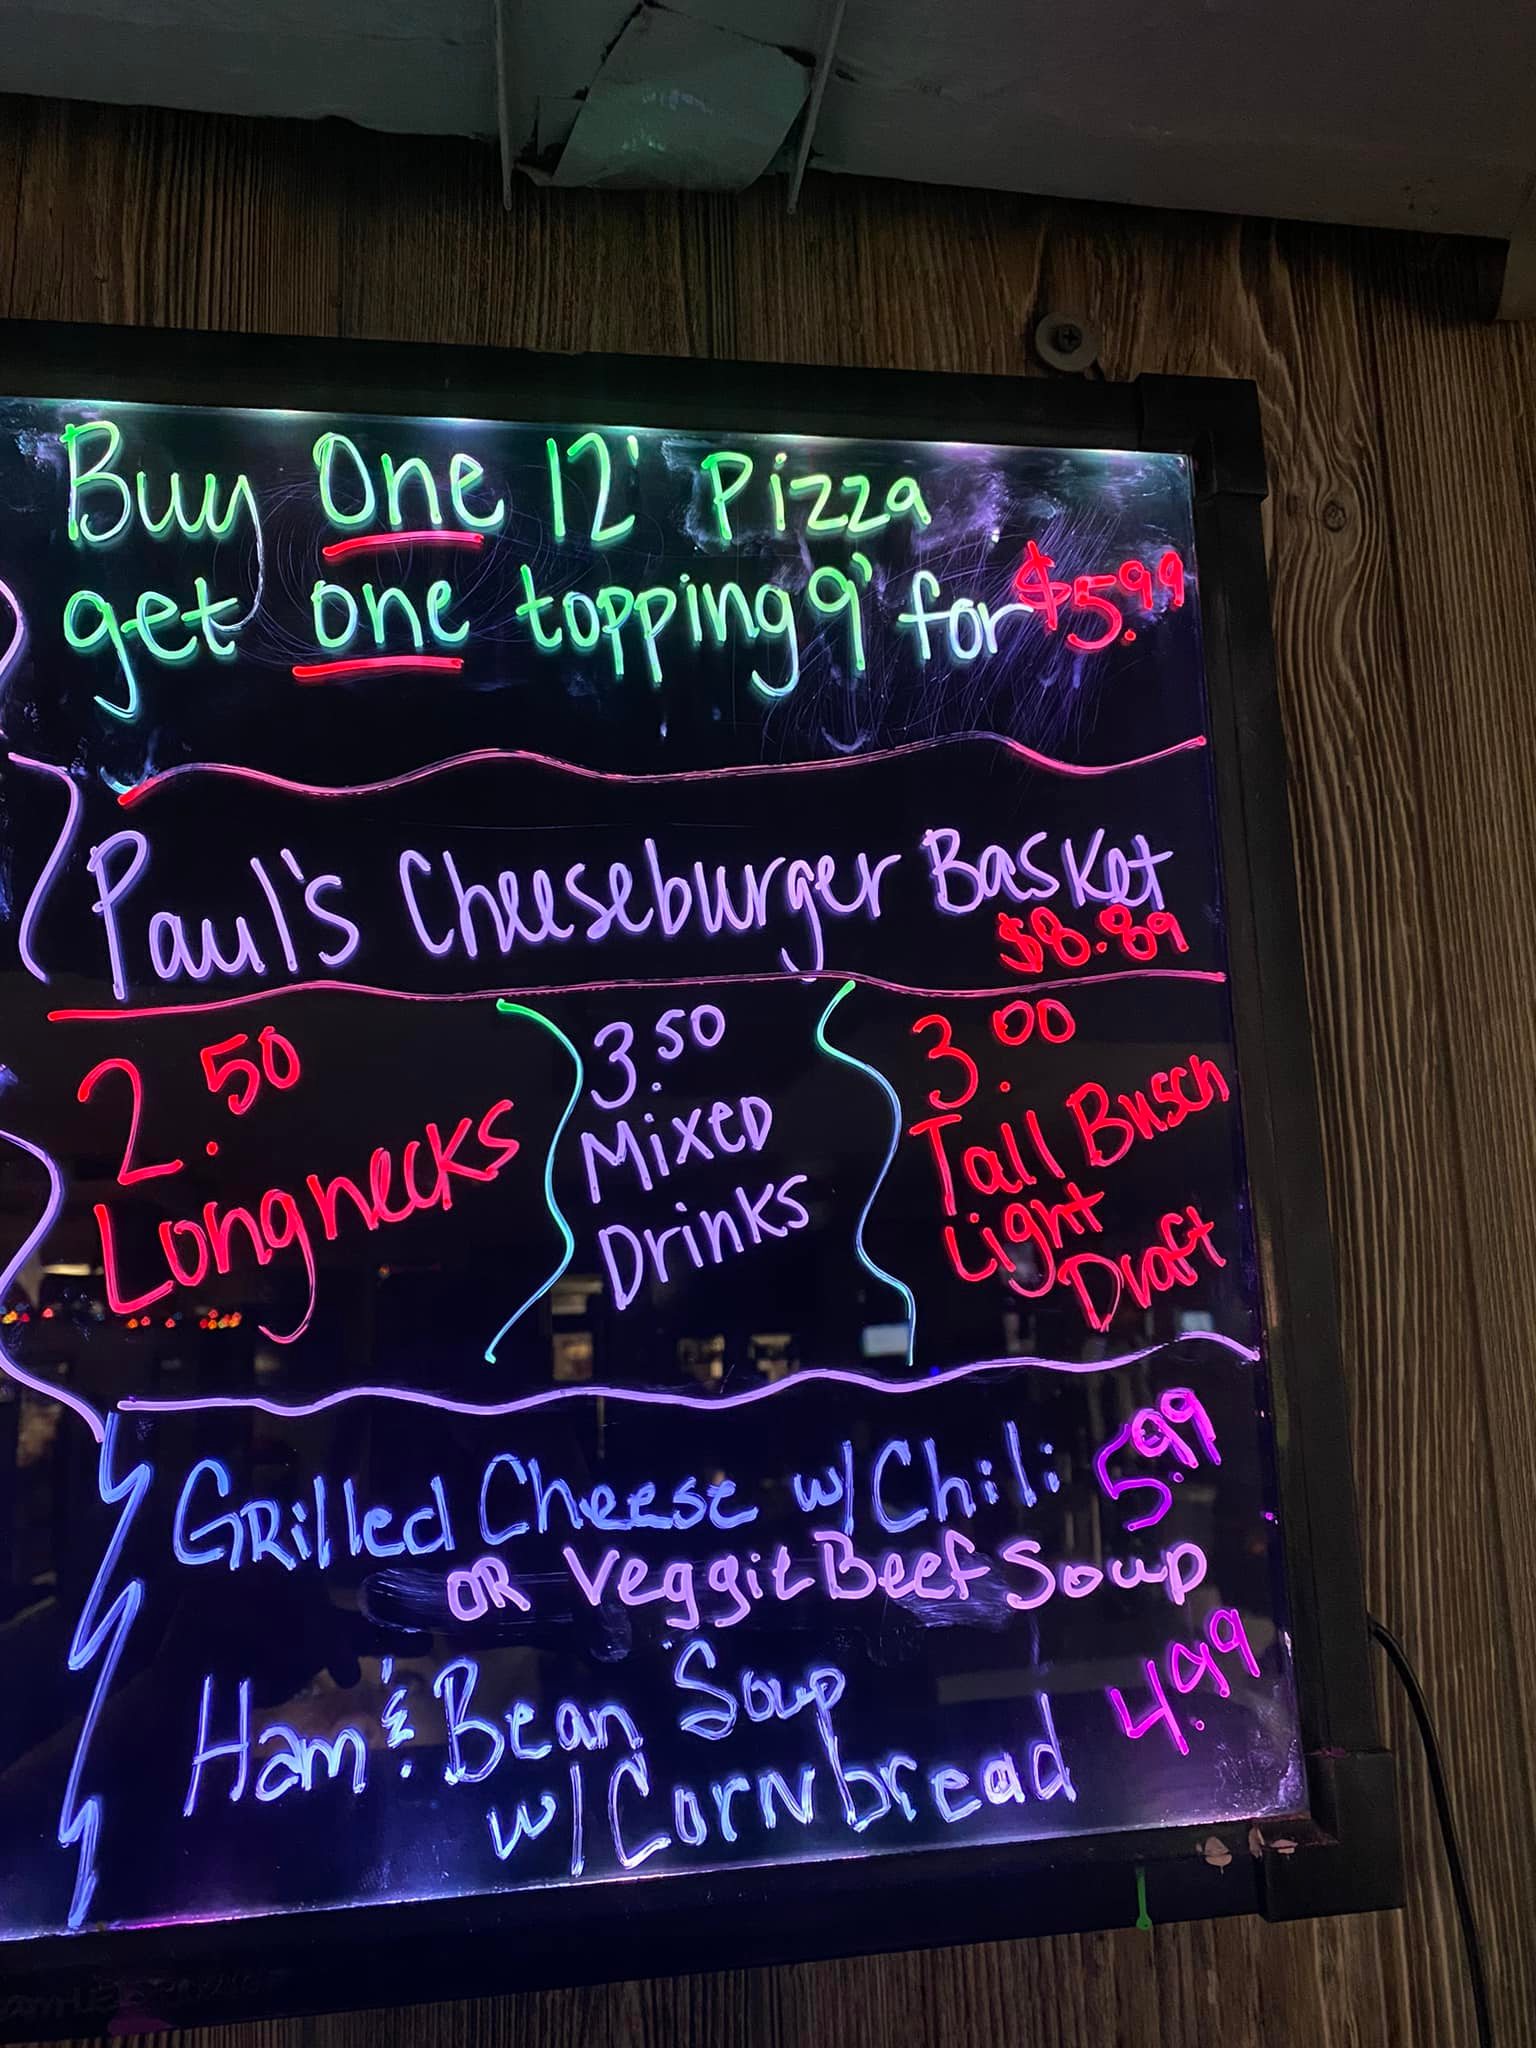 Buy One 12' Pizza
get one topping 9' for $5.99
Paul's Cheeseburger Basket
$8.89
2.50
Longnecks
3.50
Mixed
Drinks
3.00
Tall Busch
Light
Draft
Grilled Cheese w/Chili 5.99
OR Veggie Beef Soup
Ham & Bean Soup 4.99
w/ Cornbread